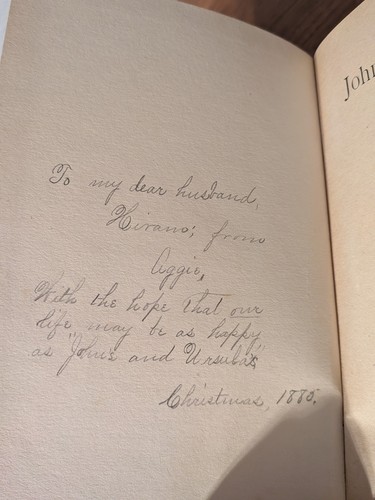 To my dear husband,
Hiram; from
Aggie,
With the hope that our
life, may be as happy,
as John's and Ursula's
Christmas, 1885.
John